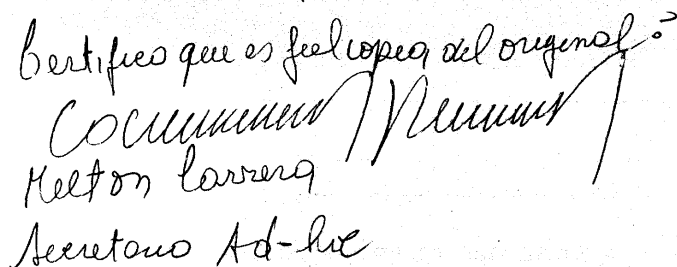 Certifico que es fiel copia del original:
Melton Carrera
Secretario Ad-hoc